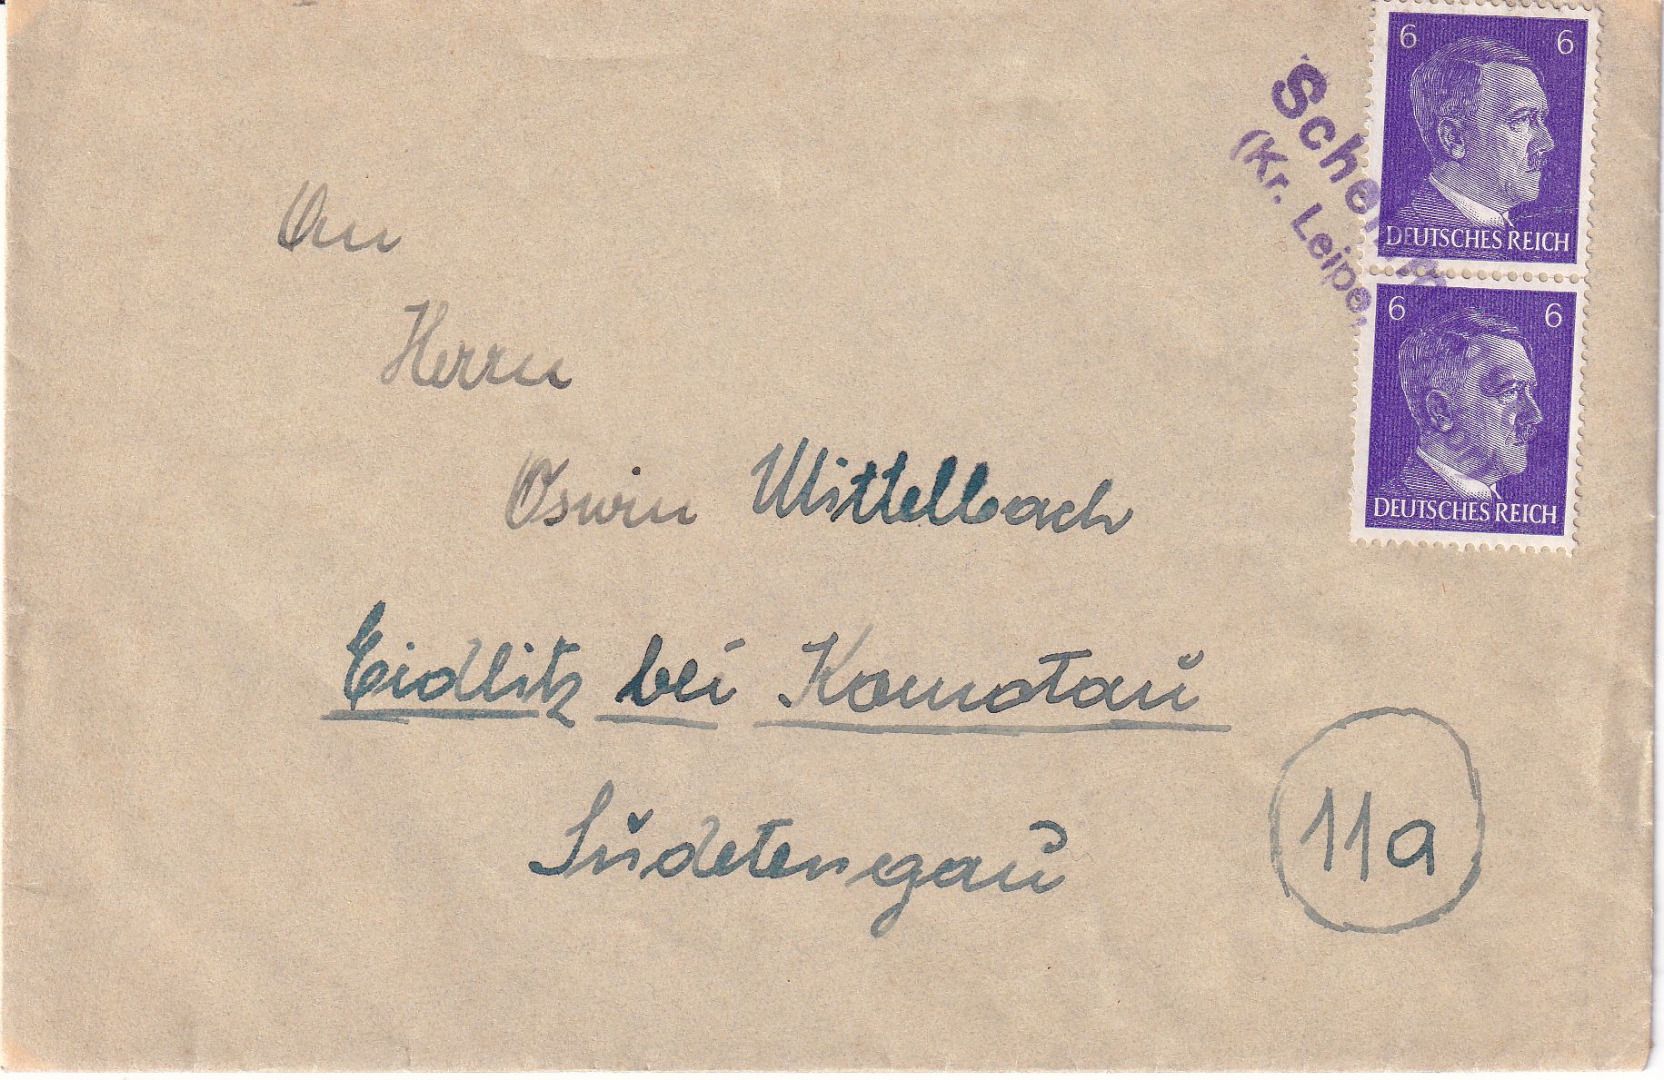 6 6
(Kr.
DEUTSCHES REICH
6 6
DEUTSCHES REICH
An
Herrn
Oswin Mittelbach
Eidlitz bei Komotau
Sudetengau
11a